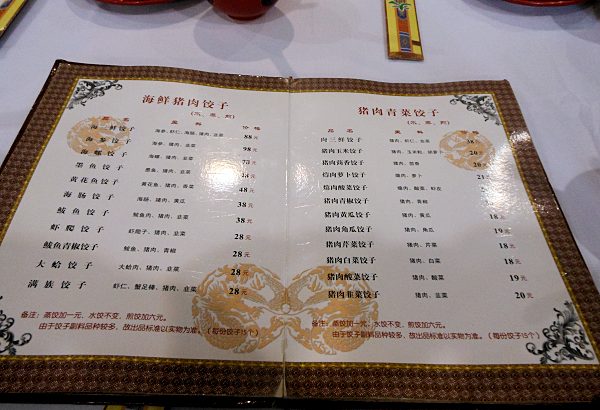 海鲜猪肉饺子
(水、蒸、煎)
品名 主料 价格
海三鲜饺子 海参、虾仁、海肠、猪肉、韭菜 88元
海参饺子 海参、猪肉、韭菜 98元
海螺饺子 海螺、猪肉、韭菜
墨鱼饺子 墨鱼、猪肉、韭菜
黄花鱼饺子 黄花鱼、猪肉、青椒 48元
海肠饺子 海肠、猪肉、黄瓜 38元
鲅鱼饺子 鲅鱼肉、猪肉、韭菜 38元
虾爬饺子 虾爬子、猪肉、韭菜 28元
鲅鱼青椒饺子 鲅鱼、猪肉、青椒 28元
大蛤饺子 大蛤肉、猪肉、韭菜 28元
满族饺子 虾仁、蟹足棒、猪肉、韭菜 28元
备注：蒸饺加一元，水饺不变，煎饺加六元。
由于饺子副料品种较多，故出品标准以实物为准。（每份饺子15个）
猪肉青菜饺子
(水、蒸、煎)
品名 主料 价格
肉三鲜饺子 猪肉、虾仁、韭菜 38元
猪肉玉米饺子 猪肉、玉米粒、胡萝卜
猪肉茴香饺子 猪肉、茴香
熔肉萝卜饺子
熔肉酸菜饺子
猪肉青椒饺子 猪肉、青椒
猪肉黄瓜饺子 猪肉、黄瓜 18元
猪肉角瓜饺子 猪肉、角瓜 19元
猪肉芹菜饺子 猪肉、芹菜 18元
猪肉白菜饺子 猪肉、白菜 18元
猪肉酸菜饺子 猪肉、酸菜 19元
猪肉韭菜饺子 猪肉、韭菜 20元
备注：蒸饺加一元，水饺不变，煎饺加六元。
由于饺子副料品种较多，故出品标准以实物为准。（每份饺子15个）